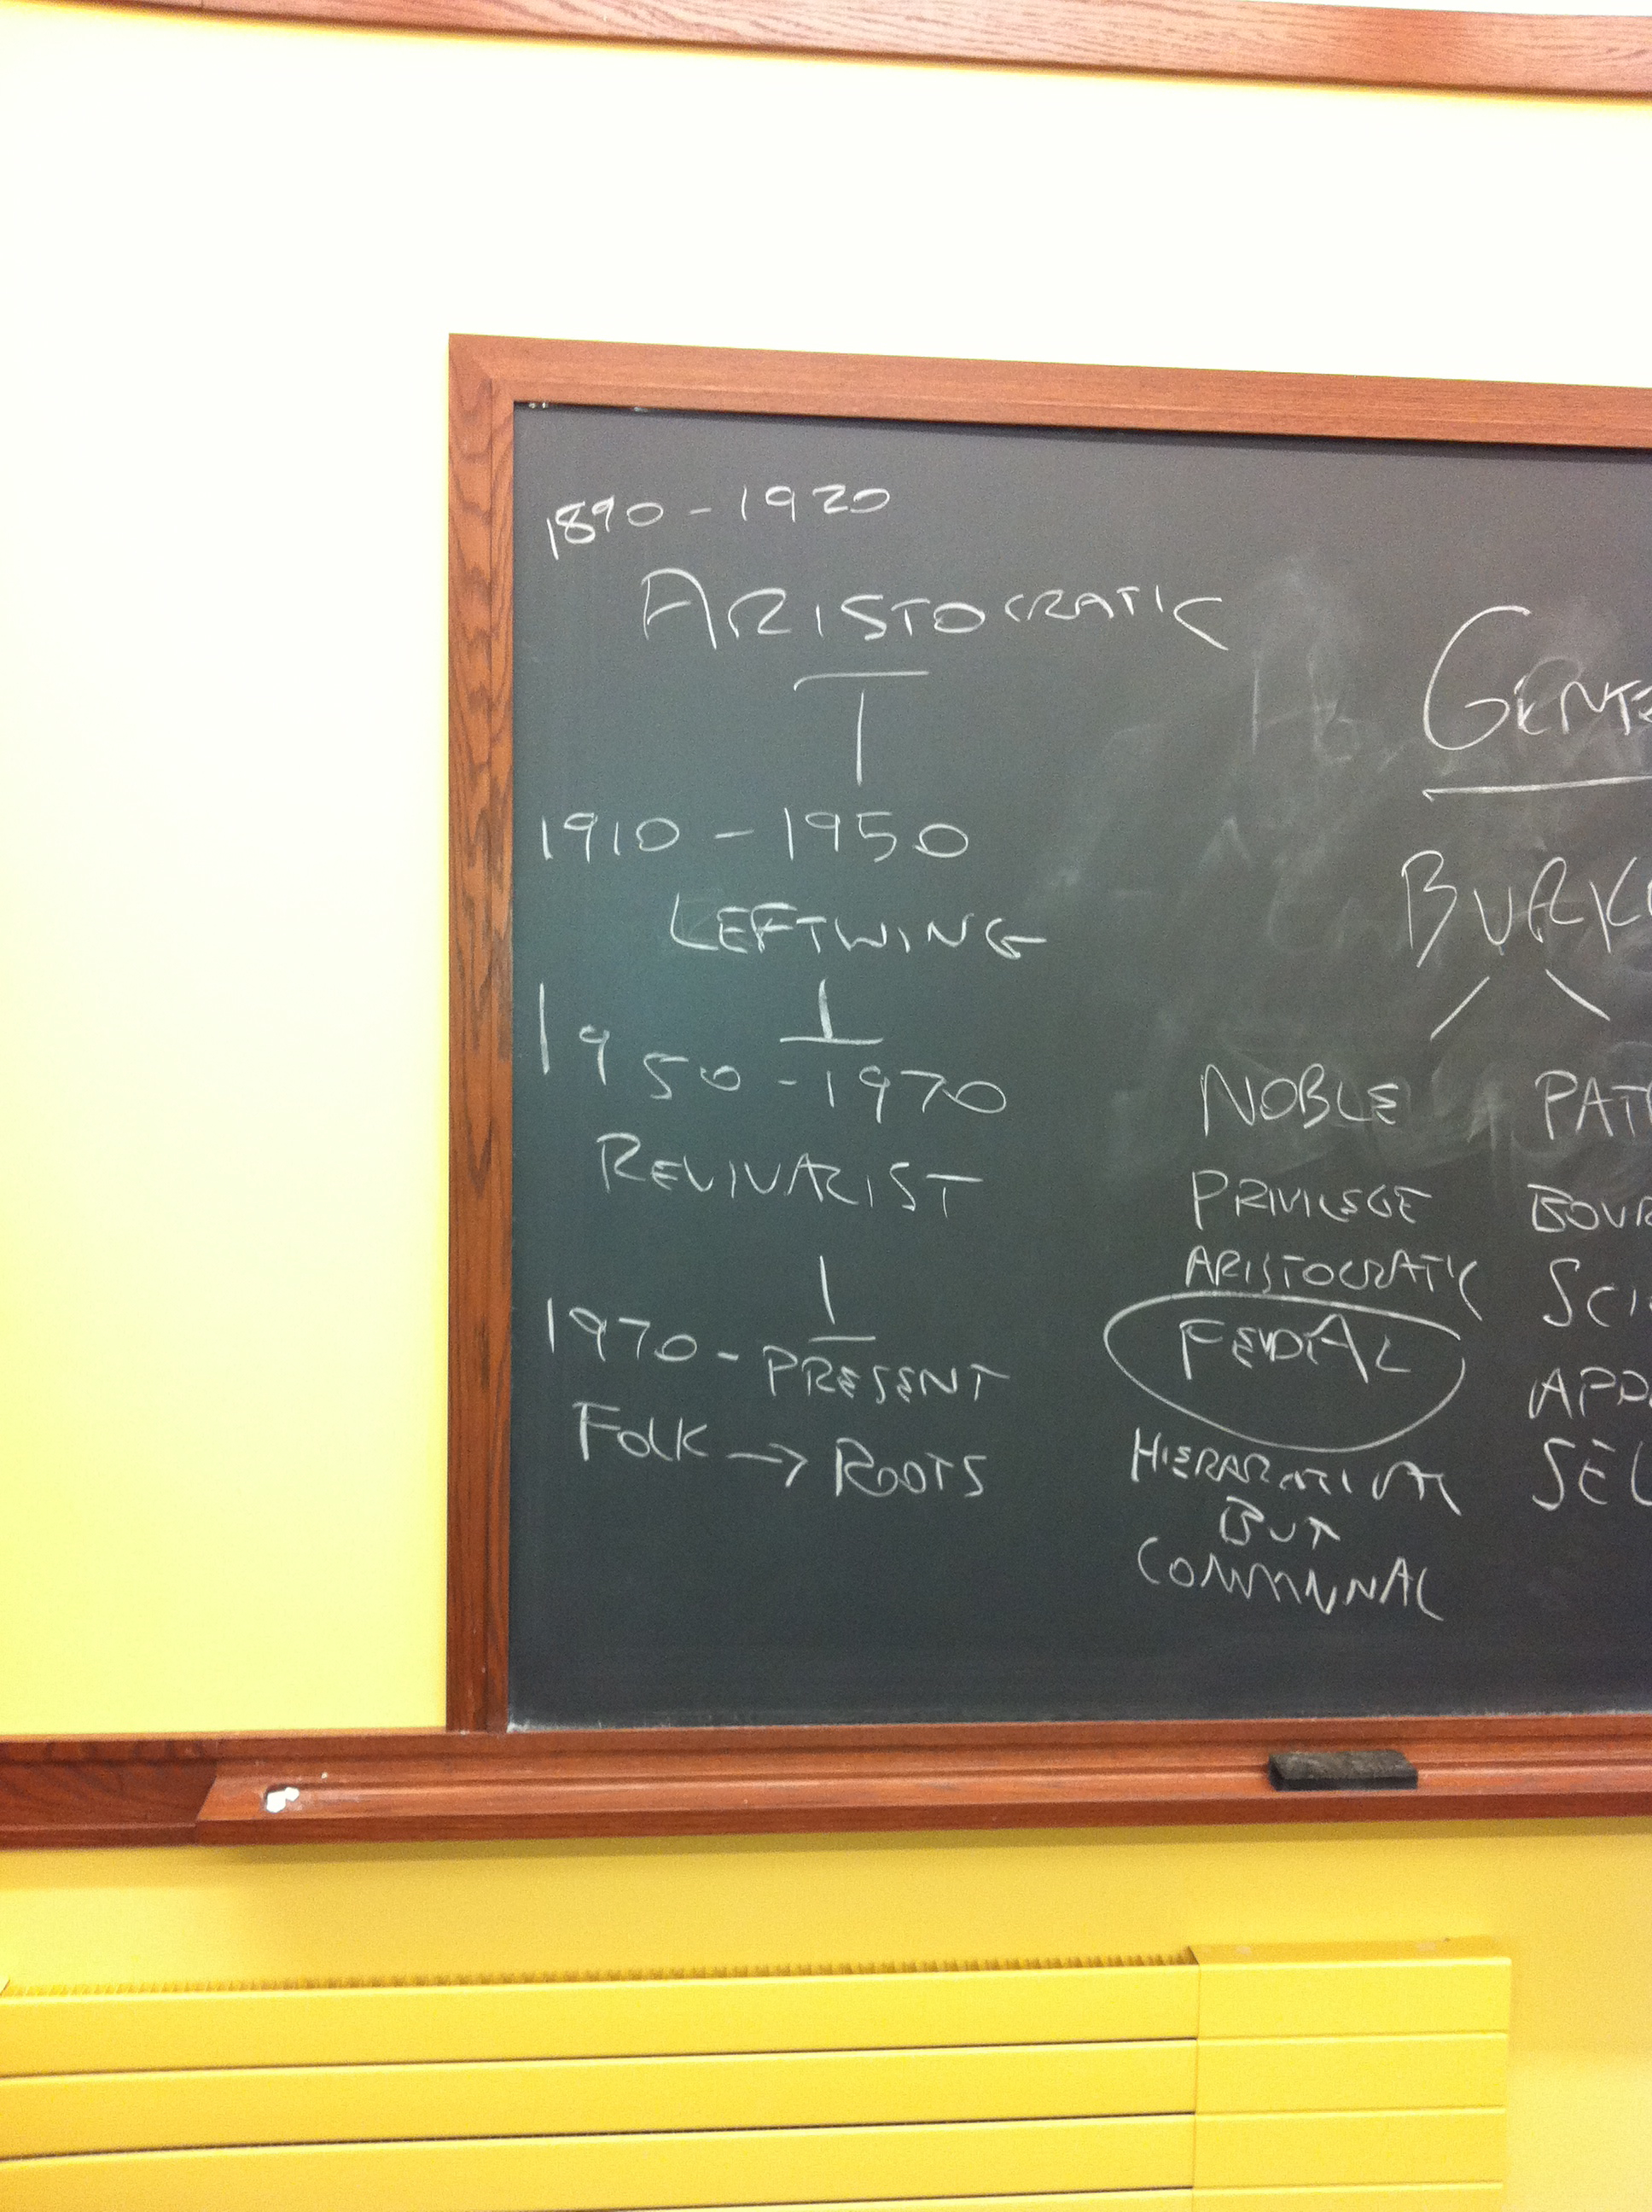 1890 - 1920
ARISTOCRATIC
1910 - 1950
LEFTWING
1950 - 1970
REVIVALIST
1970 - PRESENT
FOLK → ROOTS
GENTE
BURK
NOBLE
PRIVILEGE
ARISTOCRATIC
FEUDAL
HIERARCHICAL
BUT
COMMUNAL
PAT
BOUR
SCI
APP
SEL